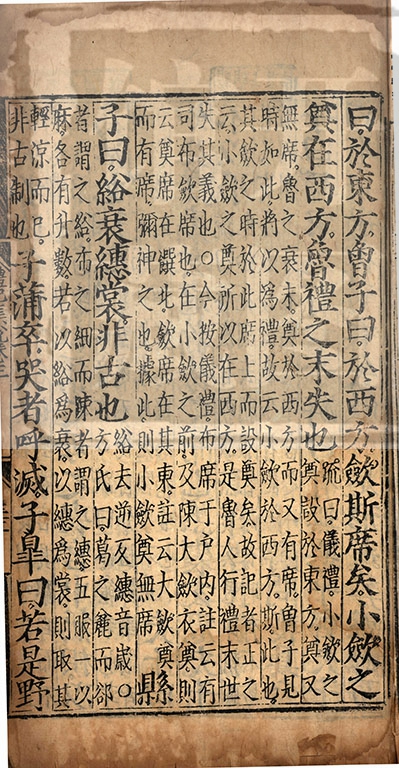 曰於東方曾子曰於西方斂斯席矣小斂之
奠在西方魯禮之末失也
疏曰儀禮小斂之
奠設於東方奠又
無席魯之衰末奠於西方而又有席曾子見
時如此將以為禮故云小斂於西方斯此也
其斂之時於此席上而設奠矣故記者正之
云小斂之奠所以在西方是魯人行禮末世
失其義也○今按儀禮布席于戶內註云有
司布斂席也在小斂之前及陳大斂衣奠則
云奠席在饌北斂席在其東註云大斂奠
而有席彌神之也據此則小斂奠無席
縣
子曰綌衰繐裳非古也
綌去逆反繐音歲○
方氏曰葛之麄而郤
者謂之綌布之細而疎者謂之繐五服一以
麻各有升數若以綌爲衰以繐爲裳則取其
輕涼而已
非古制也
子蒲卒哭者呼滅子皋曰若是野